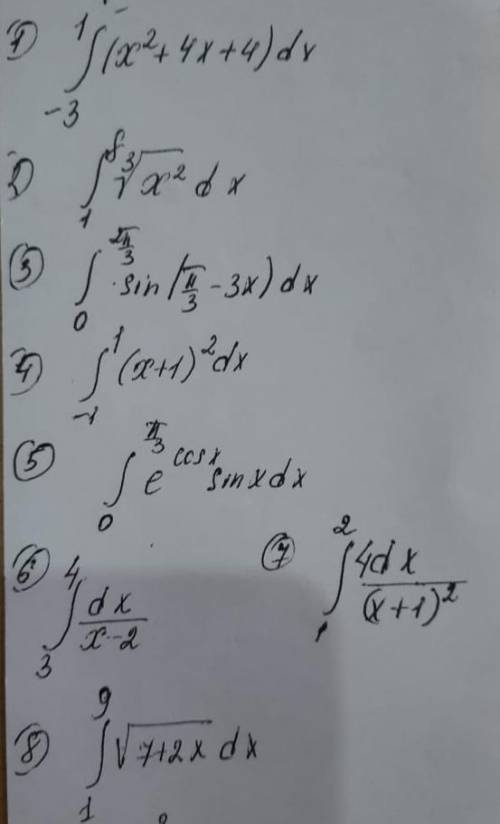 ① ∫₋₃¹ (x² + 4x + 4) dx
2) ∫₁⁸ ∛x² dx
③ ∫₀^(2π/3) sin(π/3 - 3x) dx
④ ∫₋₁¹ (x+1)² dx
⑤ ∫₀^(π/3) e^(cos x) sin x dx
⑥ ∫₃⁴ dx/(x-2)
⑦ ∫₁² 4dx/(x+1)²
⑧ ∫₁⁹ √(7+2x) dx